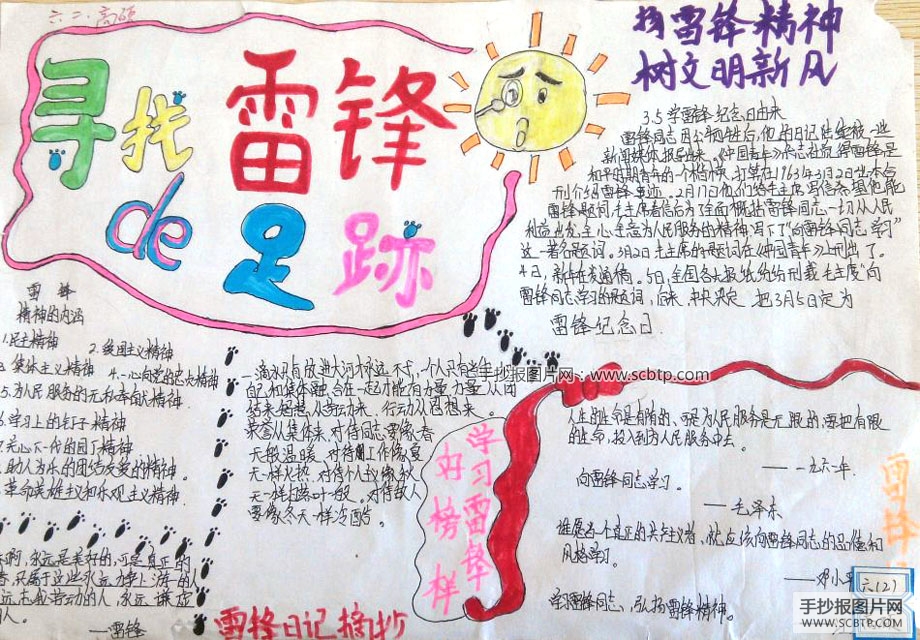 六二、高硕
寻找雷锋
de足迹
扬雷锋精神
树文明新风
3.5学雷锋纪念日由来
雷锋同志因公牺牲后,他的日记陆续被一些
新闻媒体报导出来。《中国青年》杂志社觉得雷锋是
和平时期青年的一个楷模,打算在1963年3月2日出本合
刊介绍雷锋事迹。2月17日他们给毛主席写信希望他能
雷锋题词,毛主席看信后为了全面概括雷锋同志一切从人民
利益出发,全心全意为人民服务的精神写下了"向雷锋同志学习"
这一著名题词。3月2日毛主席的题词在《中国青年》上刊出了。
4日,新华社发通稿。5日,全国各大报纸纷纷刊载毛主席"向
雷锋同志学习的题词,后来,中央决定,把3月5日定为
雷锋纪念日.
雷锋
精神的内涵
1.民主精神
2.爱国主义精神
3.集体主义精神
4.一心向党的忠大精神
5.为人民服务的无私奉献精神.
6.学习上的钉子精神
7.关心下一代的园丁精神
8.助人为乐的团结友爱的精神。
9.革命英雄主义和乐观主义精神
啊,永远是美好的,可是真正的
春,只属于这些永远力争上游的人
永远忘我劳动的人,永远谦虚
人。
——雷锋
一滴水只有放进大河才永远不干,一个人只有
自己和集体融合在一起才能有力量,力量从团
结来,智慧从劳动来,行动从思想来。
荣誉从集体来,对待同志要像春
天般温暖,对待工作像夏
天一样火热,对待个人主义像秋
天一样扫落叶一般。对待敌人
要像冬天一样冷酷。
手抄报图片网:www.scbtp.com
学习雷锋
好榜样
人生的生命是有限的,可是为人民服务是无限的,要把有限
的生命,投入到为人民服务中去。
——一九六二年.
向雷锋同志学习。
——毛泽东
谁愿当一个真正的共产主义者,就应该向雷锋同志的品德和
风格学习。
——邓小平
学习雷锋同志,弘扬雷锋精神。
雷锋
雷锋日记摘抄
六(2)
手抄报图片网
WWW.SCBTP.COM